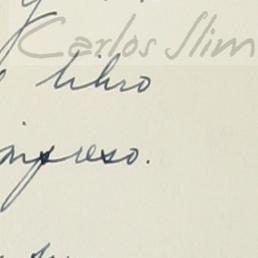 y
Carlos Slim
libro
impreso.